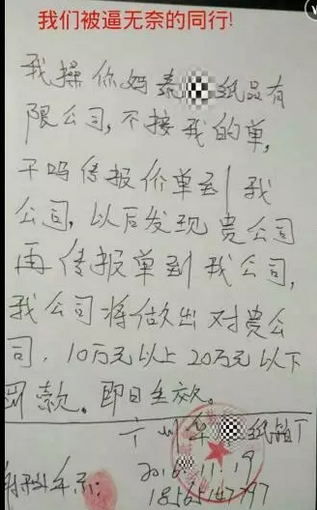 我们被逼无奈的同行!
我操你妈泰 纸品有
限公司,不接我的单,
干吗传报价单到我
公司,以后发现贵公司
再传报单到我公司,
我公司将做出对贵公
司.10万元以上20万元以下
罚款。即日生效。
州华 纸品
201 .11.19